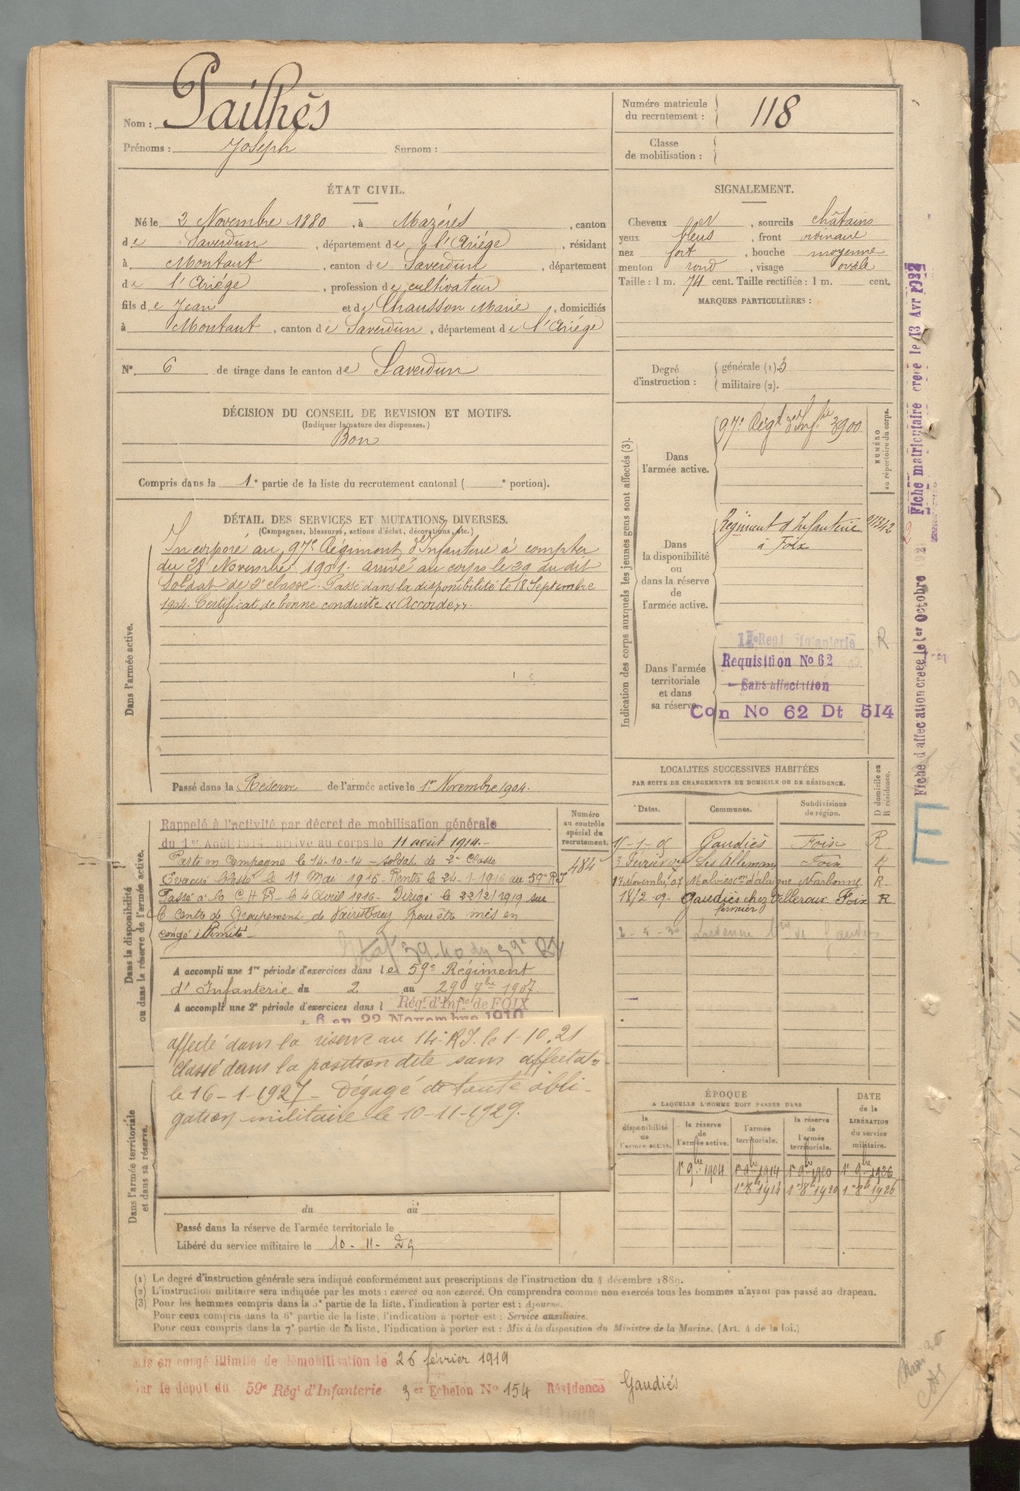 Nom : Pailhés
Prénoms : Joseph Surnom :
Numéro matricule du recrutement : 118
Classe de mobilisation :
ÉTAT CIVIL.
Né le 2 Novembre 1880, à Mazères, canton
de Saverdun, département de l'Ariége, résidant
à Montaut, canton de Saverdun, département
de l'Ariége, profession de cultivateur
fils de Jean et de Chausson Marie, domiciliés
à Montaut, canton de Saverdun, département de l'Ariége
N° 6 de tirage dans le canton de Saverdun
SIGNALEMENT.
Cheveux , sourcils châtains
yeux bleus, front ordinaire
nez fort, bouche moyenne
menton rond, visage ovale
Taille : 1 m. 74 cent. Taille rectifiée : 1 m. cent.
MARQUES PARTICULIÈRES :
Degré d'instruction : générale (1) 3
militaire (2).
DÉCISION DU CONSEIL DE REVISION ET MOTIFS.
(Indiquer la nature des dispenses.)
Bon
Compris dans la 1e partie de la liste du recrutement cantonal ( e portion).
DÉTAIL DES SERVICES ET MUTATIONS DIVERSES.
(Campagnes, blessures, actions d'éclat, décorations, etc.)
Dans l'armée active.
Incorporé au 97e Régiment d'Infanterie à compter
du 28 Novembre 1901. arrivé au corps le 29 du dit
Soldat de 2e classe. Passé dans la disponibilité le 18 Septembre
1904. Certificat de bonne conduite "Accordé".
Passé dans la Réserve de l'armée active le 1er Novembre 1904.
Indication des corps auxquels les jeunes gens sont affectés (3).
NUMÉRO au répertoire du corps.
Dans l'armée active.
97e Régt d'Infrie 3900
Dans la disponibilité ou dans la réserve de l'armée active.
Régiment d'Infanterie
à Foix
Dans l'armée territoriale et dans sa réserve.
Regt Infanterie
R
Requisition No 62
Sans affectation
Con No 62 Dt 514
LOCALITÉS SUCCESSIVES HABITÉES
PAR SUITE DE CHANGEMENTS DE DOMICILE OU DE RÉSIDENCE.
Dates. Communes. Subdivisions de région. D domicile ou R résidence.
Gaudiès Foix R
Les Allemans Foix R
17 Novembre 07 Narbonne R
18/2 09 Gaudiès chez Foix R
fermier
Dans la disponibilité ou dans la réserve de l'armée active.
Numéro au contrôle spécial du recrutement.
484
Rappelé à l'activité par décret de mobilisation générale
du 1er Août 1914. arrivé au corps le 11 août 1914.
Parti en Campagne le 14-10-14 - Soldat de 2e Classe
Evacué blessé le 11 Mai 1915 - Rentré le 24-1-1916 au 59e RI
Passé à la C H R le 4 Avril 1916. Dirigé le 22/2/1919 sur
le Centre de Groupement de pour être mis en
congé illimité -
A accompli une 1re période d'exercices dans le 59e Régiment
d'Infanterie du 2 au 29 7bre 1907
A accompli une 2e période d'exercices dans l Régt d'Infie de FOIX
6 au 22 Novembre 1910
affecté dans la réserve au 14e R.I. le 1-10.21
Classé dans la position dite sans affectation
le 16-1-1927 - Dégagé de toute obli-
gation militaire le 10-11-1929.
Dans l'armée territoriale et dans sa réserve.
du au
Passé dans la réserve de l'armée territoriale le
Libéré du service militaire le 10-11-29
ÉPOQUE
A LAQUELLE L'HOMME DOIT PASSER DANS
la disponibilité de l'armée active. la réserve de l'armée active. l'armée territoriale. la réserve de l'armée territoriale. DATE de la LIBÉRATION du service militaire.
1er 9bre 1904 1er 9bre 1914 1er 9bre 1920 1er 9bre 1926
(1) Le degré d'instruction générale sera indiqué conformément aux prescriptions de l'instruction du 4 décembre 1889.
(2) L'instruction militaire sera indiquée par les mots : exercé ou non exercé. On comprendra comme non exercés tous les hommes n'ayant pas passé au drapeau.
(3) Pour les hommes compris dans la 5e partie de la liste, l'indication à porter est : Ajourné.
Pour ceux compris dans la 6e partie de la liste, l'indication à porter est : Service auxiliaire.
Pour ceux compris dans la 7e partie de la liste, l'indication à porter est : Mis à la disposition du Ministre de la Marine. (Art. 4 de la loi.)
Mis en congé illimité de démobilisation le 26 février 1919
par le dépôt du 59e Régt d'Infanterie 3er Echelon No 154 Résidence Gaudiés
Fiche matriculaire créée le 13 Avr 1932
Fiche d'affectation créée le 1er Octobre
E